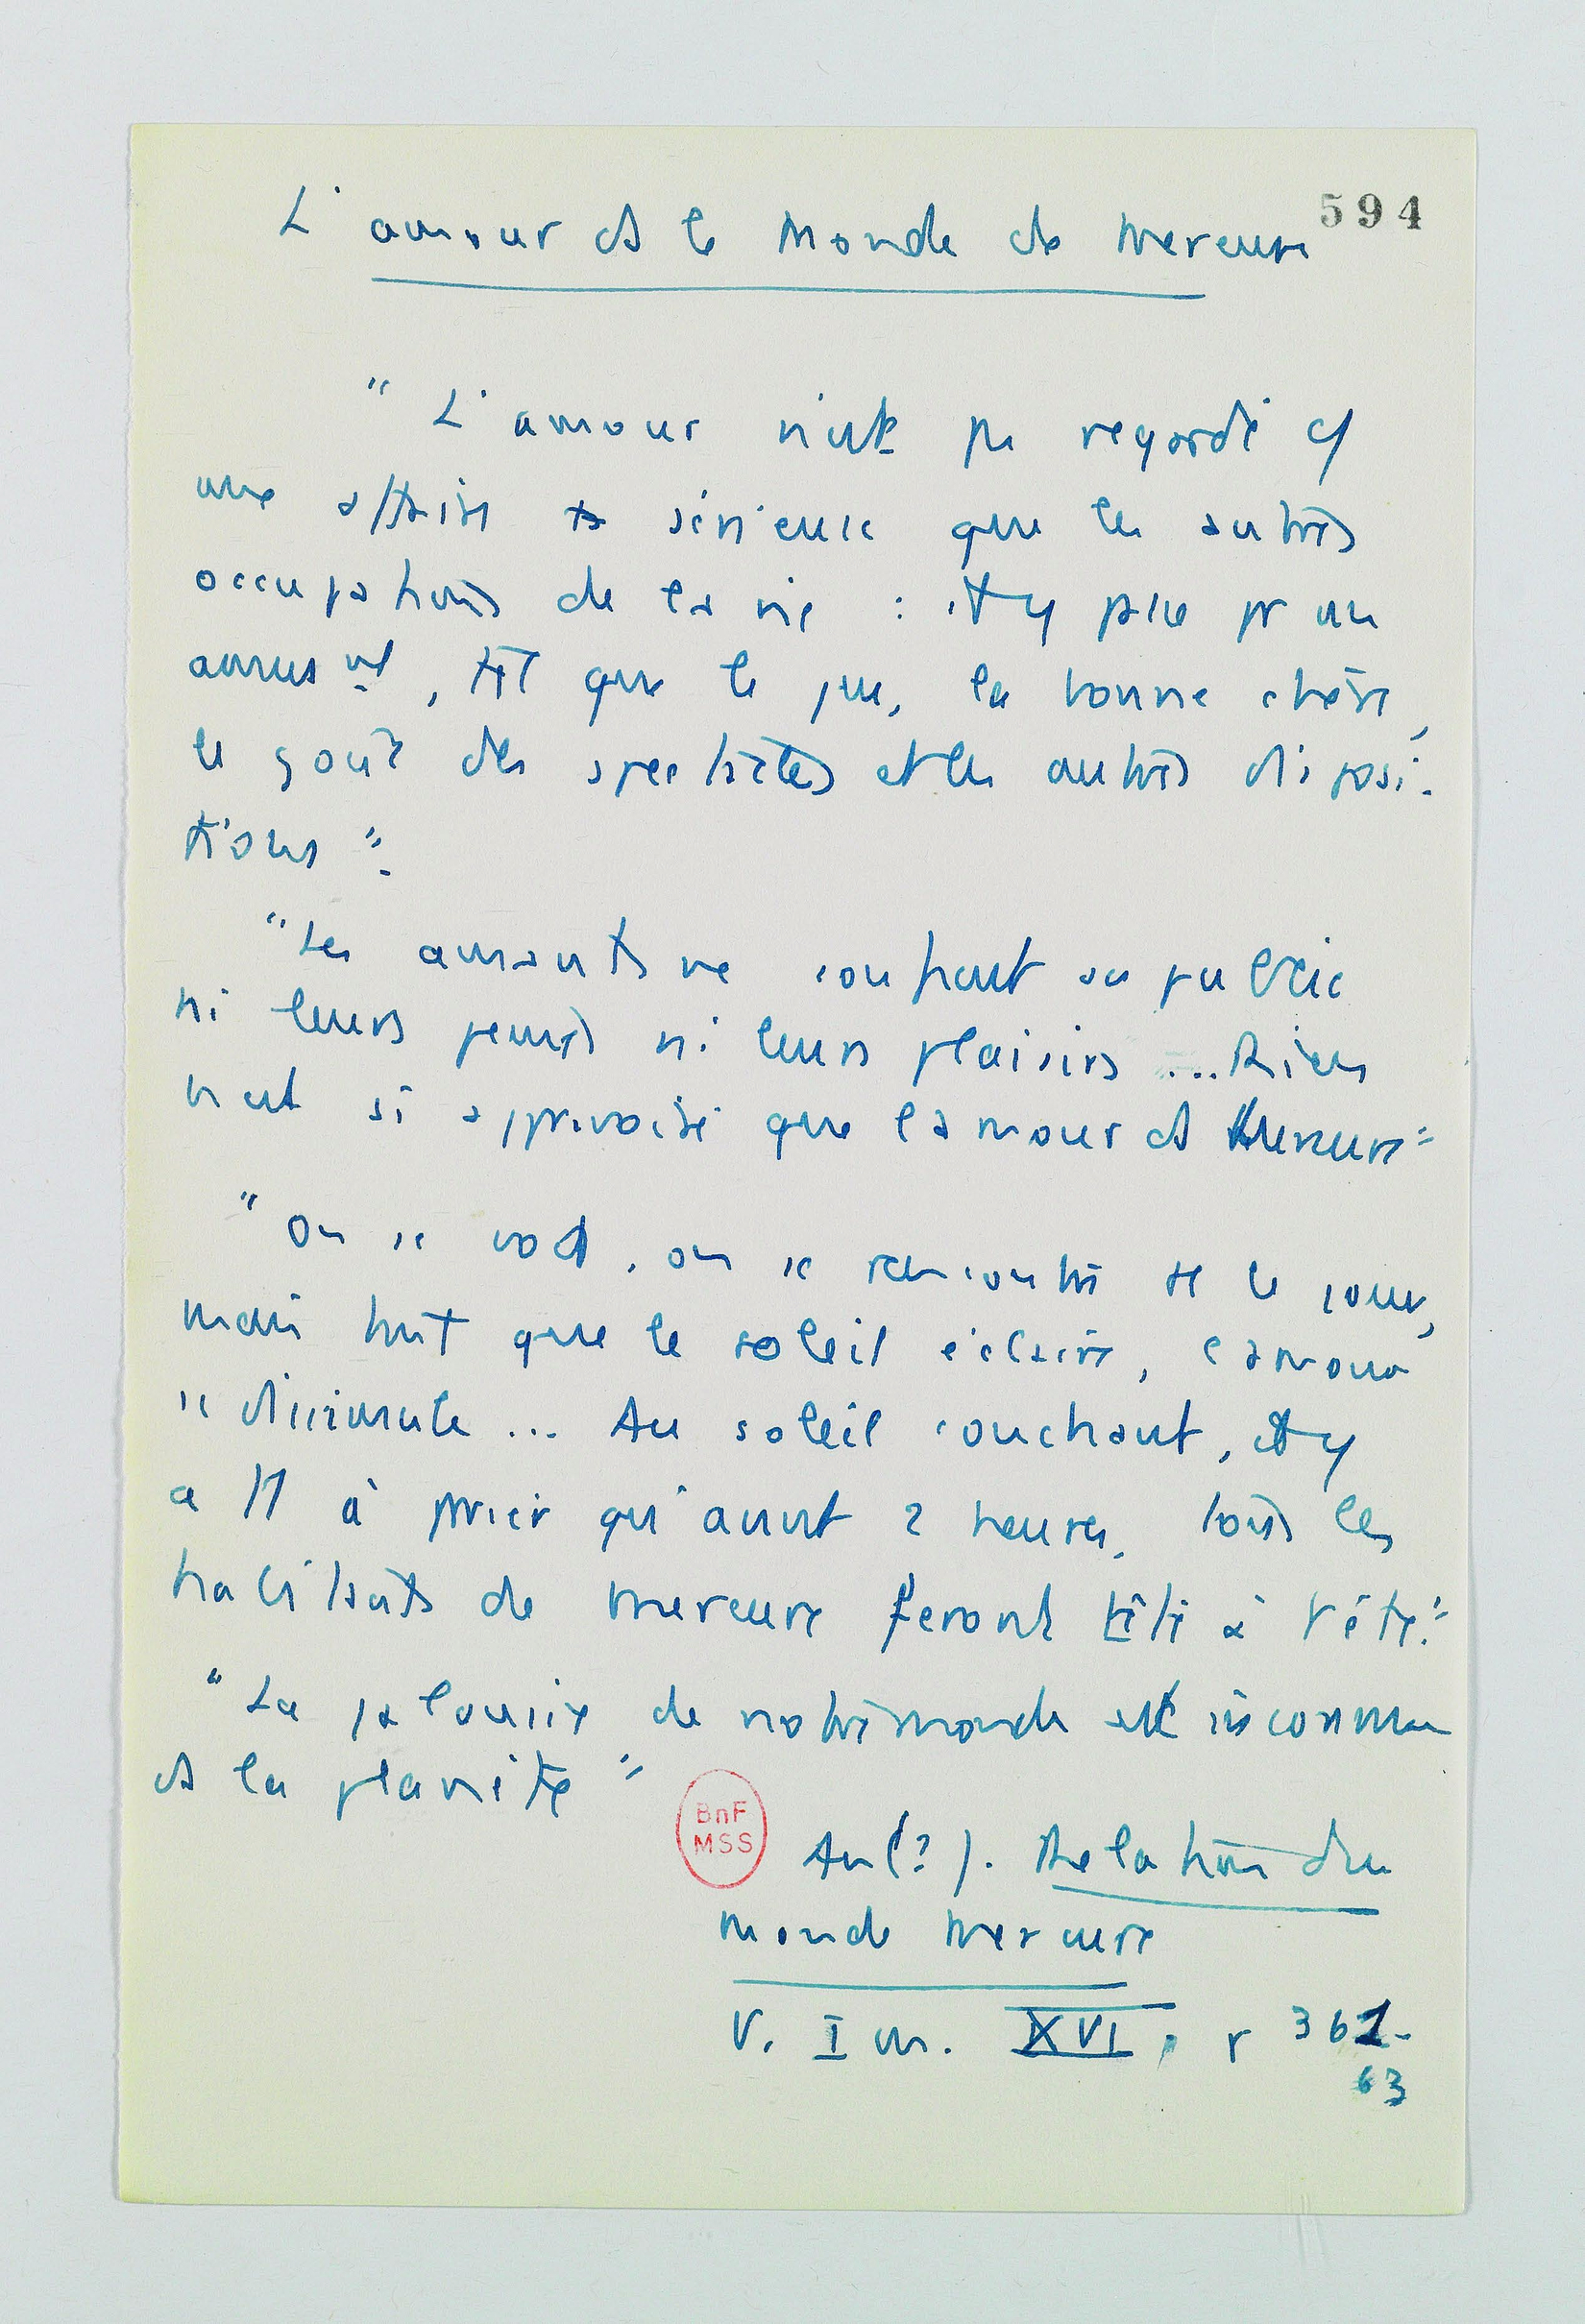 594
L'amour ds le monde de Mercure
" L'amour n'est pas regardé c/
une affaire + sérieuse que les autres
occupations de la vie : il y passe pr un
amusmt, tel que le jeu, la bonne chère,
le goût des spectacles et les autres disposi-
tions".
"Les amants ne confient au public
ni leurs peines ni leurs plaisirs ... Rien
n'est si apprivoisé que l'amour ds Mercure"
" On se voit, on se rencontre le jour,
mais tant que le soleil éclaire, l'amour
se dissimule ... Au soleil couchant, il y
a à parier qu'avant 2 heures, tous les
habitants de Mercure feront tête à tête."
"La jalousie de notre monde est inconnue
ds la planète"
BnF
MSS
An (?). Relation du
monde Mercure
V. Im. XVI, p 361-
63